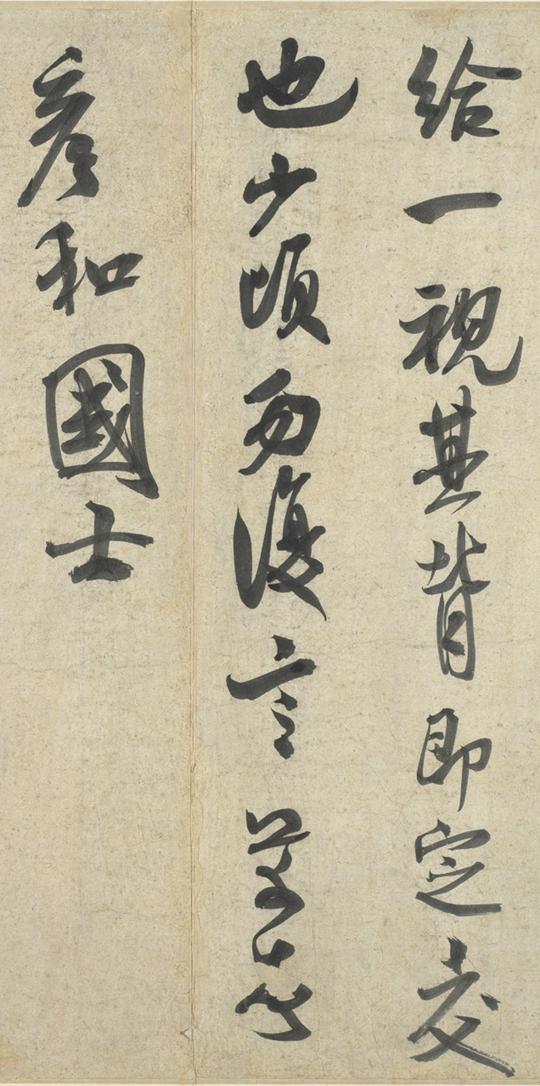 給一視其背即定交
也少頃勿復言
彥和國士